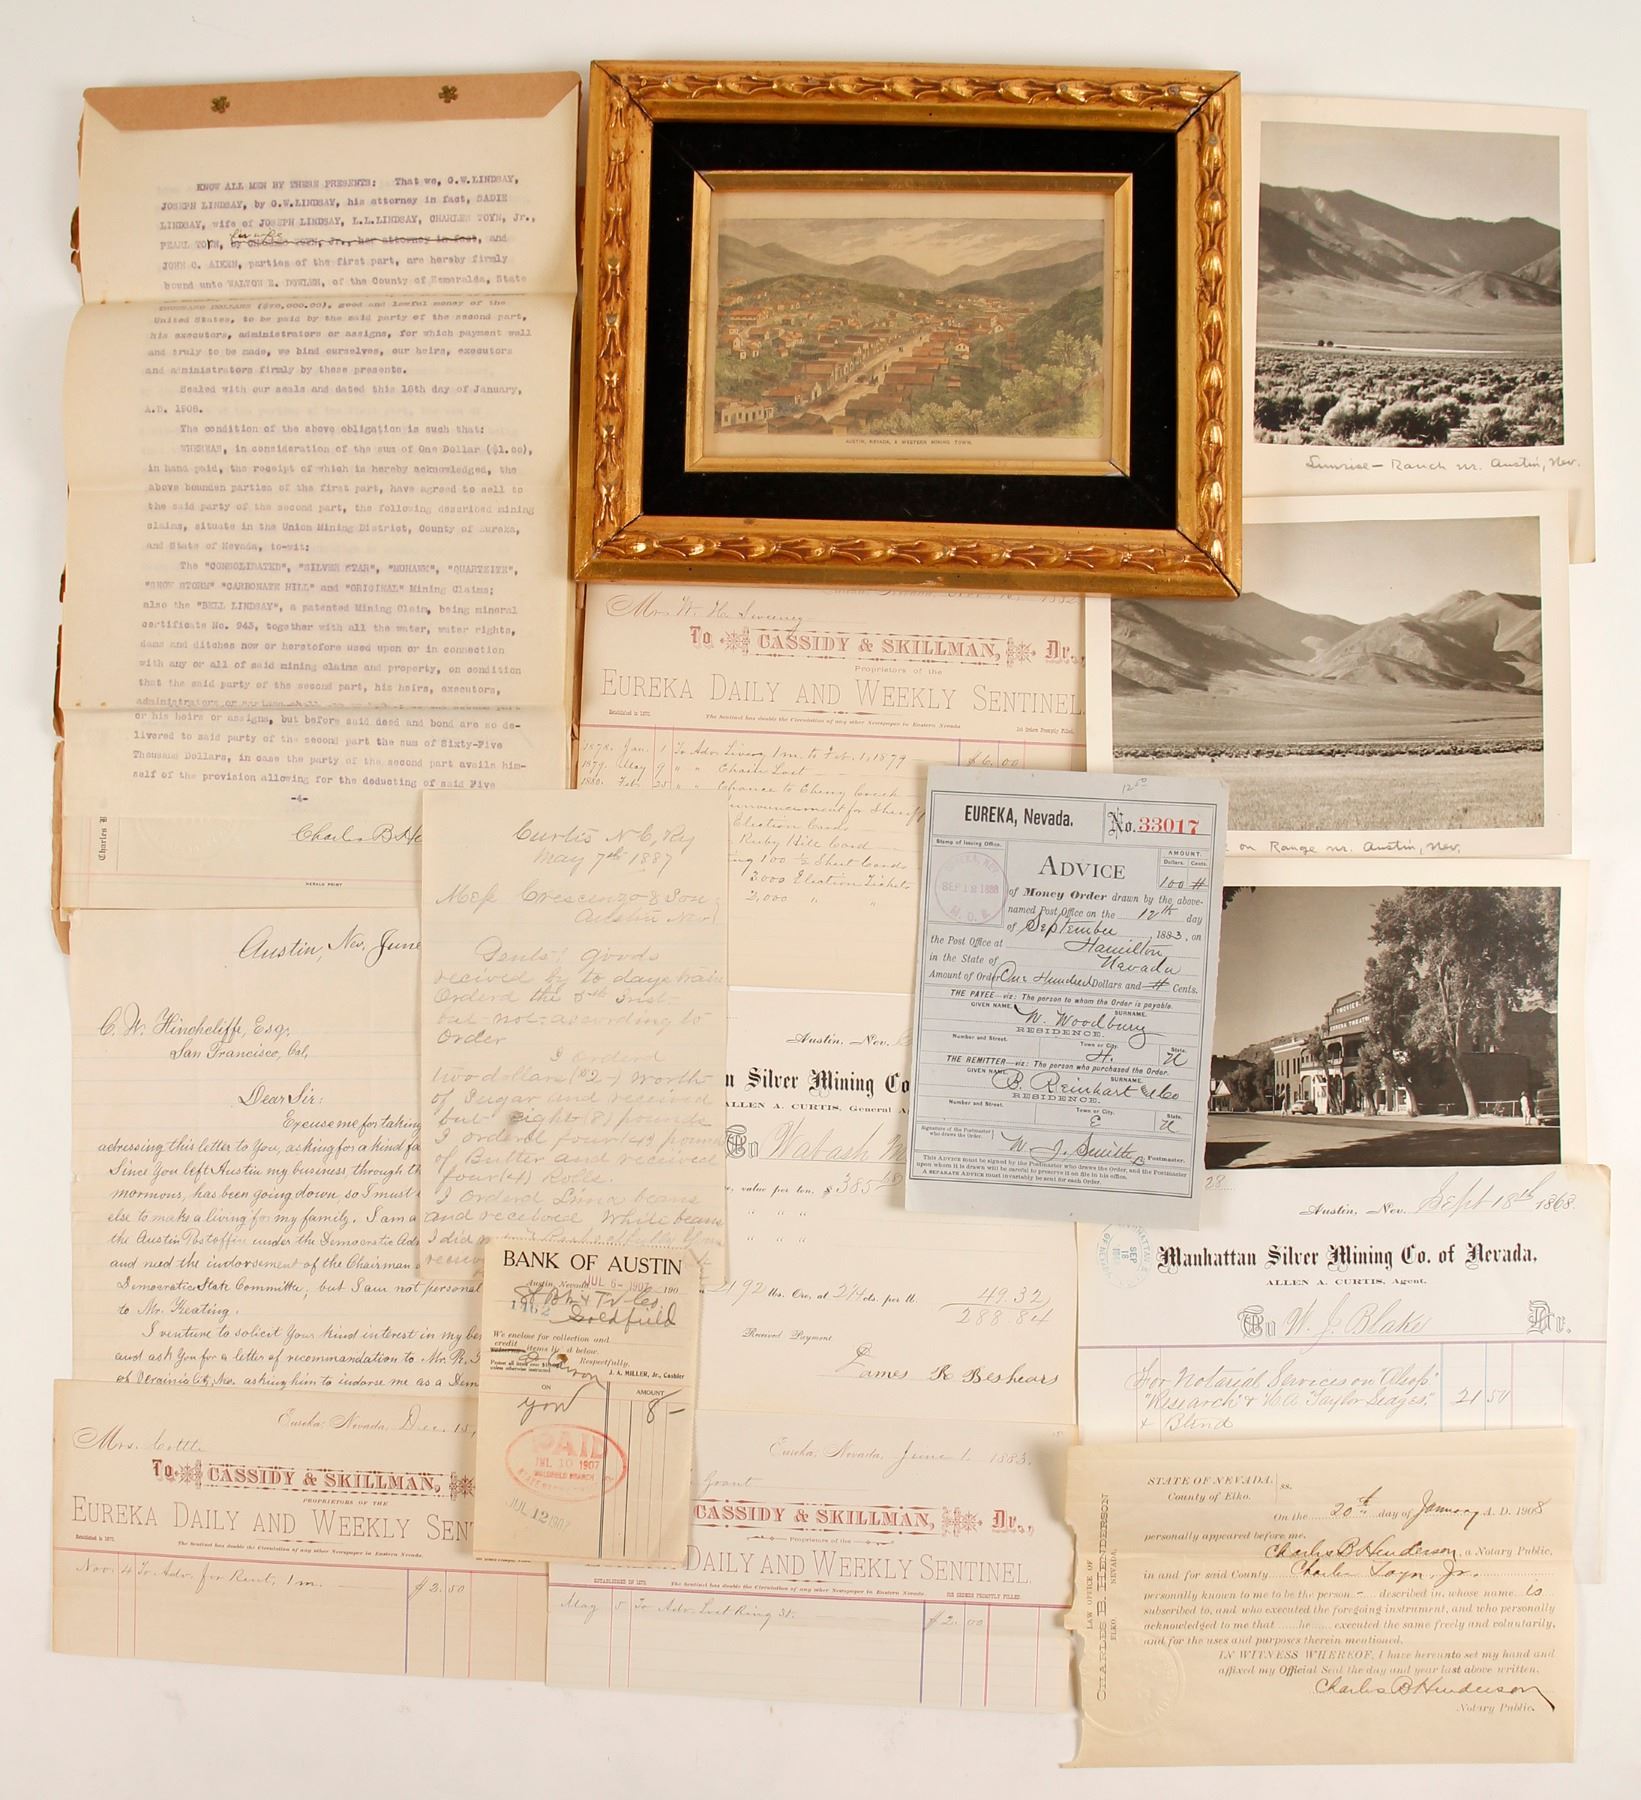 KNOW ALL MEN BY THESE PRESENTS: That we, G.W.LINDSAY,
JOSEPH LINDSAY, by G.W.LINDSAY, his attorney in fact, SADIE
LINDSAY, wife of JOSEPH LINDSAY, L.L.LINDSAY, CHARLES TOYN, Jr.,
PEARL TOYN, his wife, and
JOHN C. AIKEN, parties of the first part, are hereby firmly
bound unto WALTON E. DOWLEN, of the County of Esmeralda, State
THOUSAND DOLLARS ($70,000.00), good and lawful money of the
United States, to be paid by the said party of the second part,
his executors, administrators or assigns, for which payment well
and truly to be made, we bind ourselves, our heirs, executors
and administrators firmly by these presents.
Sealed with our seals and dated this 18th day of January,
A.D. 1908.
The condition of the above obligation is such that:
WHEREAS, in consideration of the sum of One Dollar ($1.00),
in hand paid, the receipt of which is hereby acknowledged, the
above bounden parties of the first part, have agreed to sell to
the said party of the second part, the following described mining
claims, situate in the Union Mining District, County of Eureka,
and State of Nevada, to-wit:
The "CONSOLIDATED", "SILVER STAR", "MOHAWK", "QUARTZITE",
"SNOW STORM" "CARBONATE HILL" and "ORIGINAL" Mining Claims;
also the "BELL LINDSAY", a patented Mining Claim, being mineral
certificate No. 943, together with all the water, water rights,
dams and ditches now or heretofore used upon or in connection
with any or all of said mining claims and property, on condition
that the said party of the second part, his heirs, executors,
administrators or assigns shall
or his heirs or assigns, but before said deed and bond are so de-
livered to said party of the second part the sum of Sixty-Five
Thousand Dollars, in case the party of the second part avails him-
self of the provision allowing for the deducting of said Five
-4-
Charles B He
HERALD PRINT
AUSTIN, NEVADA, A WESTERN MINING TOWN.
Sunrise - Ranch nr. Austin, Nev.
on Range nr. Austin, Nev.
EUREKA THEATRE
Mr. W. H. Sweeney
To CASSIDY & SKILLMAN, Dr.,
Proprietors of the
EUREKA DAILY AND WEEKLY SENTINEL
Established in 1870.
The Sentinel has double the Circulation of any other Newspaper in Eastern Nevada
Job Orders Promptly Filled.
1878. Jan. 1 To Adv. Living 1 m. to Feb. 1, 1879 $6.00
1879. May 9 " " Chain Lost
1880. Feb. 25 " " Chance to Cherry Creek
nnouncement for Sheriff
Election Cards
Ruby Hill Card
100 ½ Sheet Cards
3,000 Election Tickets
2,000 " "
12 50
EUREKA, Nevada.
No. 33017
Stamp of Issuing Office.
SEP 12 1883
M. O. B.
ADVICE
AMOUNT.
Dollars. Cents.
100 #
of Money Order drawn by the above-
named Post Office on the 12th day
of September 1883, on
the Post Office at Hamilton
in the State of Nevada
Amount of Order One Hundred Dollars and # Cents.
THE PAYEE—viz: The person to whom the Order is payable.
GIVEN NAME. SURNAME.
W. Woodbury
RESIDENCE.
Number and Street. Town or City. State.
H. N
THE REMITTER—viz: The person who purchased the Order.
GIVEN NAME. SURNAME.
B. Reinhart & Co
RESIDENCE.
Number and Street. Town or City. State.
E N
Signature of the Postmaster
who draws the Order.
W. J. Smith Postmaster.
This ADVICE must be signed by the Postmaster who draws the Order, and the Postmaster
upon whom it is drawn will be careful to preserve it on file in his office.
A SEPARATE ADVICE must invariably be sent for each Order.
Curtis N C, Ry
May 7th 1887
Mess Crescenzo & Son
Austin Nev
Gents; goods
recived by to days train
Orderd the 5th Inst
but not according to
Order
I orderd
two dollars ($2-) worth
of Sugar and received
but eight (8) pounds
I orderd four (4) pounds
of Butter and received
four (4) Rolls.
I orderd Lima beans
and received White beans
I did
Austin, Nev. June
C. W. Hinchcliffe, Esq.
San Francisco, Cal,
Dear Sir:
Excuse me for taking
adressing this letter to You, asking for a kind fa
Since You left Austin my business, through th
mormons, has been going down, so I must
else to make a living for my family. I am a
the Austin Postoffice under the Democratic Ad
and need the indorsement of the Chairman
Democratic State Committee, but I am not personal
to Mr. Keating.
I venture to solicit Your kind interest in my be
and ask You for a letter of recommandation to Mr. R.
of Virginia City, Nev. asking him to indorse me as a Dem
Austin, Nev.
n Silver Mining Co
ALLEN A. CURTIS, General A
To Wabash M
value per ton, $385
2192 lbs. Ore, at 2 1/4 cts. per lb. 49.32
288.84
Received Payment
James R Beshears
BANK OF AUSTIN
Austin, Nevada JUL 6- 1907 190
1462
Goldfield
We enclose for collection and
credit items listed below.
Respectfully,
J. A. MILLER, Jr., Cashier
ON AMOUNT
you 8 -
PAID
JUL 10 1907
JUL 12 1907
28
Austin, Nev. Sept 18th 1868.
SEP 18
Manhattan Silver Mining Co. of Nevada.
ALLEN A. CURTIS, Agent.
To W. J. Blake Dr.
For Notarial Services on "Alsop"
"Research" & "Taylor Leages," 21 50
& Blind
Eureka, Nevada, Dec. 15,
Mrs. Cottle
To CASSIDY & SKILLMAN,
PROPRIETORS OF THE
EUREKA DAILY AND WEEKLY SEN
Established in 1870.
The Sentinel has double the Circulation of any other Newspaper in Eastern Nevada.
Nov. 4 To Adv. for Rent, 1 m. $2.50
Eureka, Nevada, June 1, 1883.
Grant
CASSIDY & SKILLMAN, Dr.,
Proprietors of the
DAILY AND WEEKLY SENTINEL
ESTABLISHED IN 1870
The Sentinel has double the Circulation of any other Newspaper in Eastern Nevada.
JOB ORDERS PROMPTLY FILLED
May 5 To Adv. Lost Ring 3t. $2.00
LAW OFFICE OF
CHARLES B. HENDERSON
ELKO, NEVADA
STATE OF NEVADA,
County of Elko. ss.
On the 20th day of January A. D. 1908
personally appeared before me,
Charles B Henderson, a Notary Public,
in and for said County Charles Toyn, Jr.
personally known to me to be the person - described in, whose name is
subscribed to, and who executed the foregoing instrument, and who personally
acknowledged to me that he executed the same freely and voluntarily,
and for the uses and purposes therein mentioned.
IN WITNESS WHEREOF, I have hereunto set my hand and
affixed my Official Seal the day and year last above written.
Charles B Henderson
Notary Public.